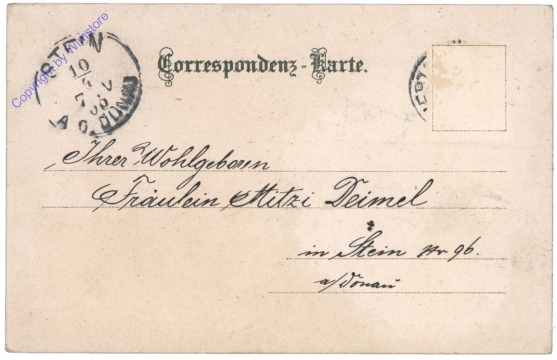 Copyright by Winstore
STEIN
10
A. D. DONAU
Correspondenz-Karte.
Ihrer Wohlgeboren
Fräulein Mitzi Deimel
in Stein Nr 96.
a/Donau